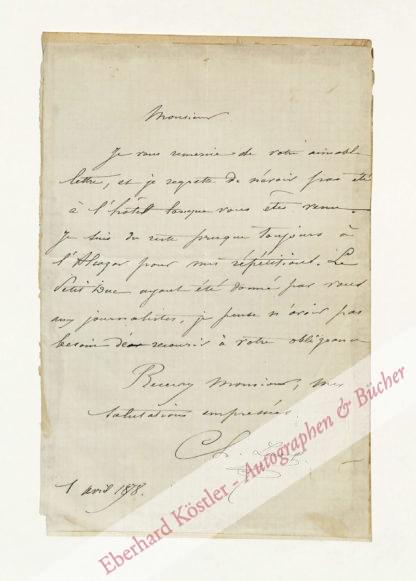 Monsieur
Je vous remercie de votre aimable
lettre, et je regrette de n'avoir pas été
à l'hôtel lorsque vous êtes venu.
Je suis du reste presque toujours à
l'Alcazar pour mes répétitions. Le
Petit Duc ayant été donné par vous
aux journalistes, je pense n'avoir pas
besoin de recourir à votre obligeance
Recevez Monsieur, mes
salutations empressées
Ch.
1 avril 1878.
Eberhard Köstler - Autographen & Bücher